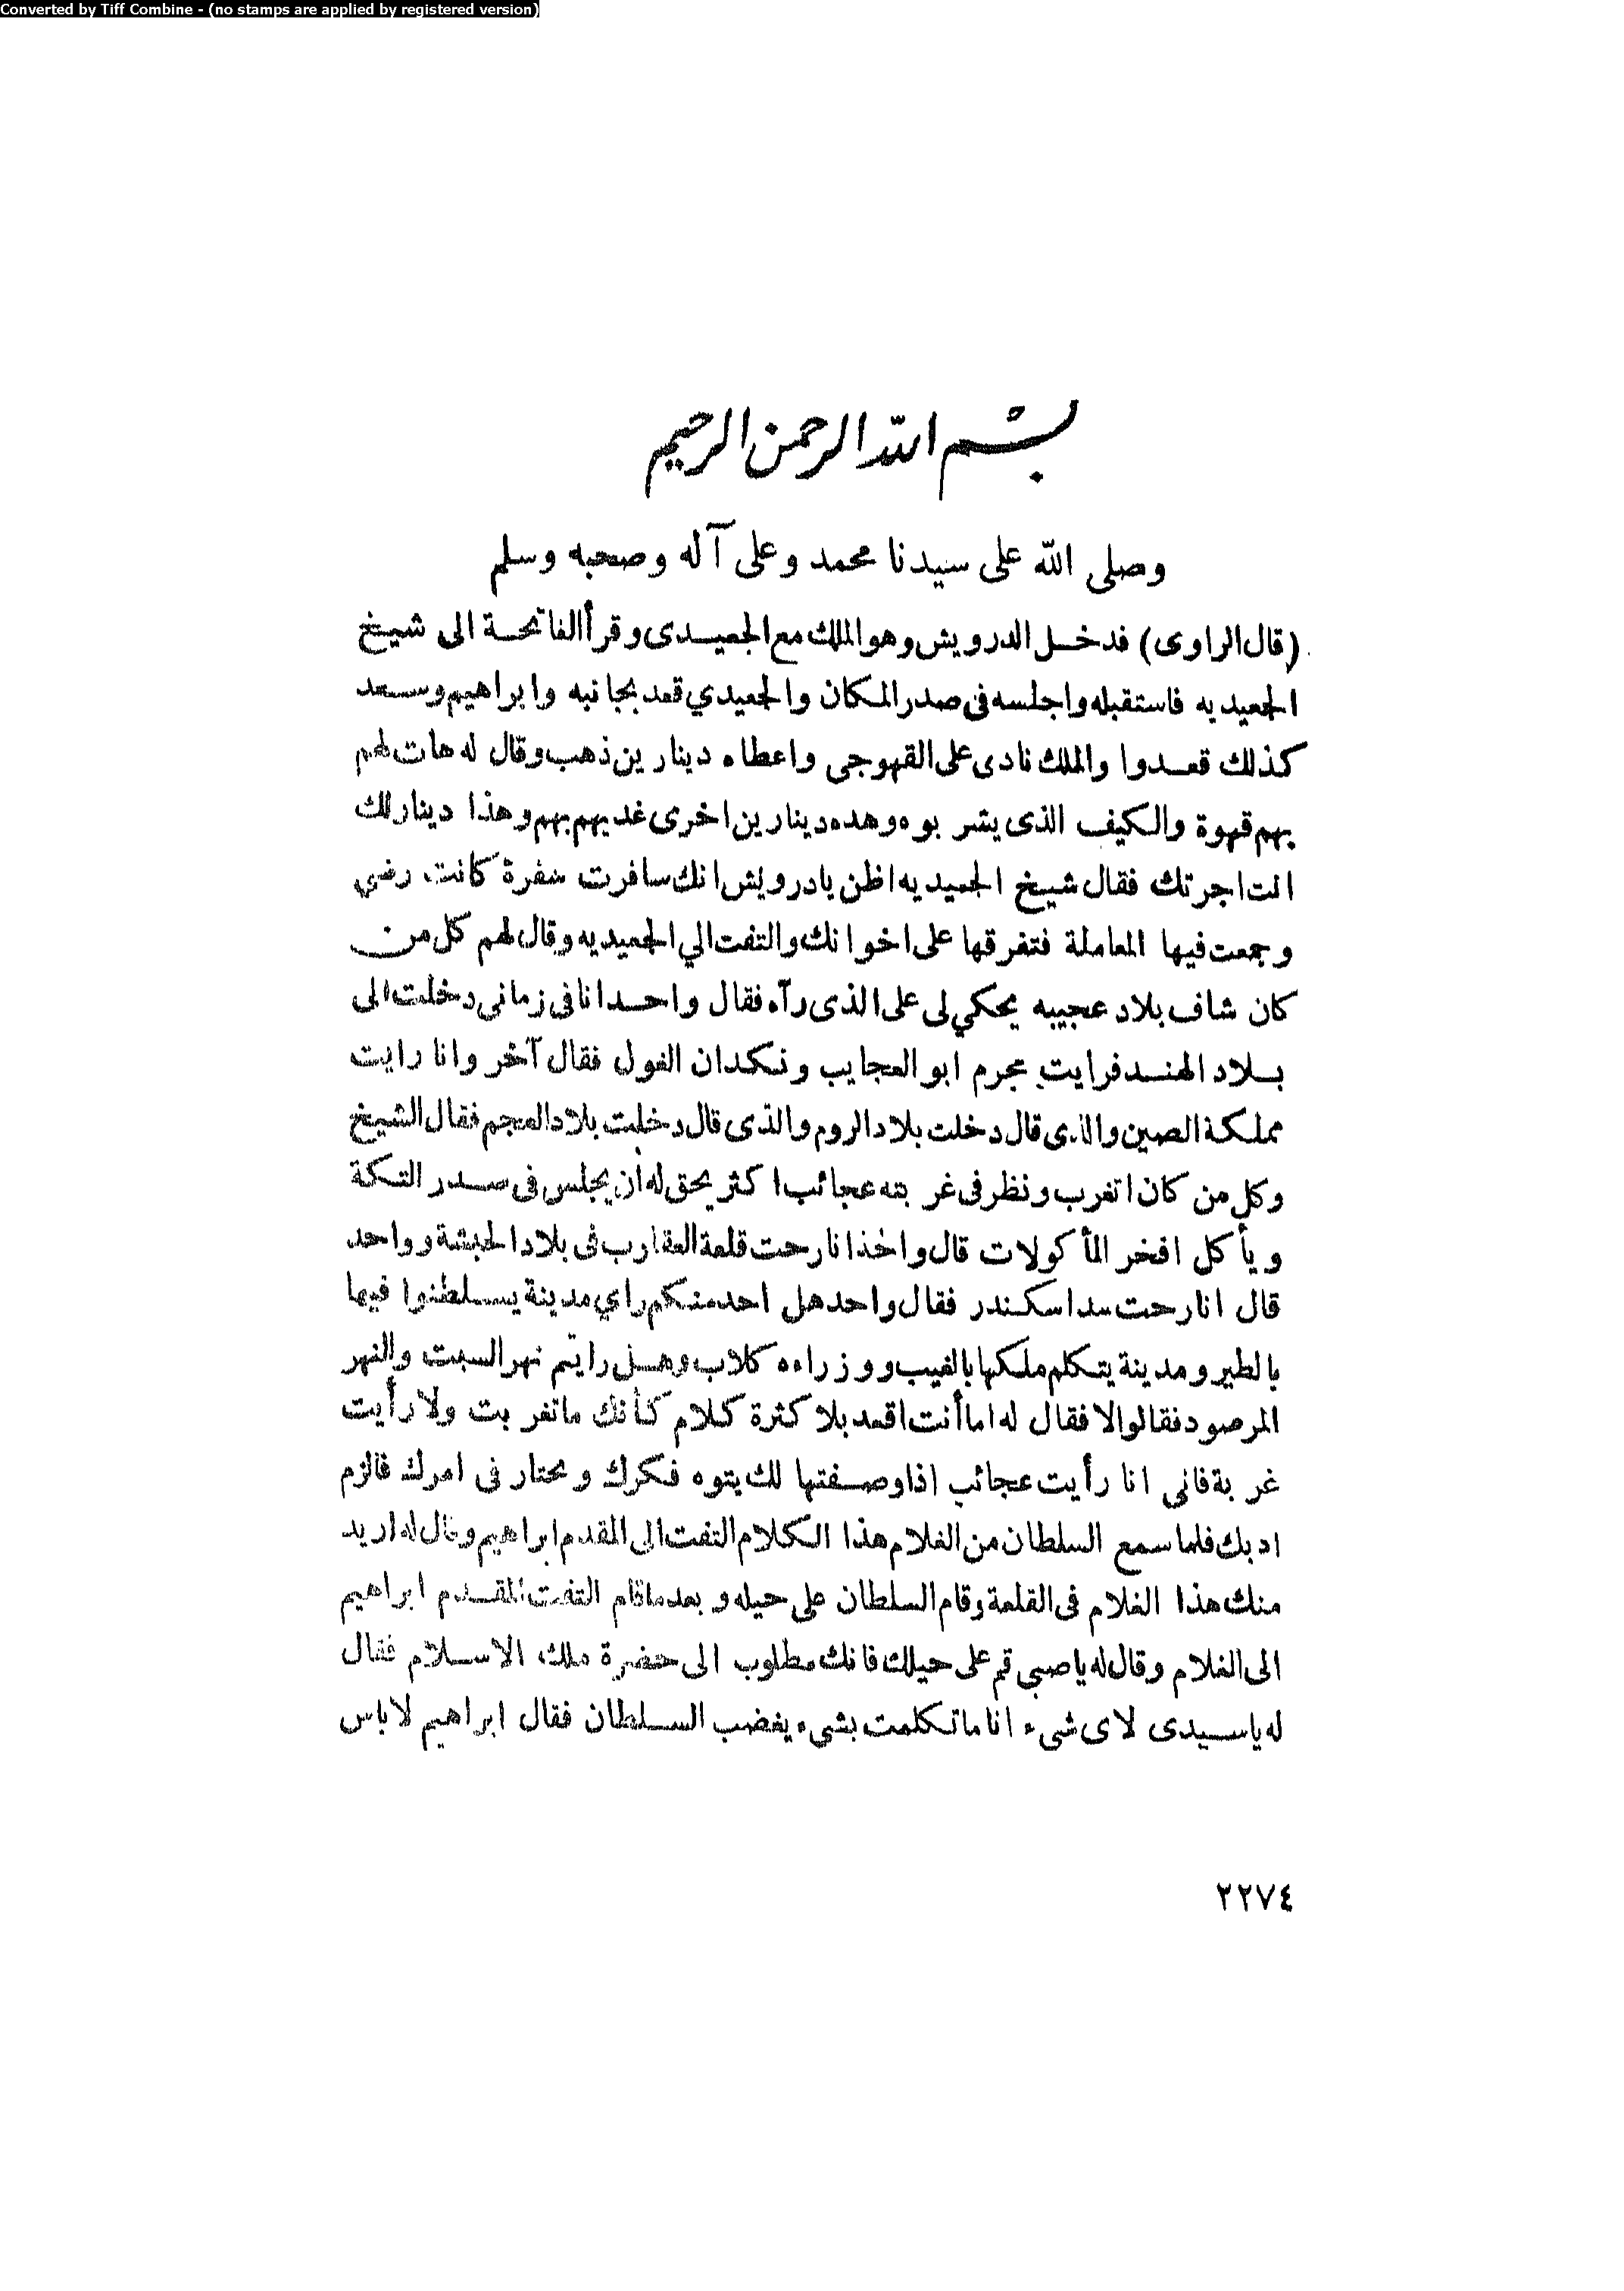 Converted by Tiff Combine - (no stamps are applied by registered version)
بسم الله الرحمن الرحيم
وصلى الله على سيدنا محمد وعلى آله وصحبه وسلم
(قال الراوى) فدخل الدرويش وهو الملك مع الجعيدى وقرأ الفاتحة الى شيخ
الجعيديه فاستقبله واجلسه فى صدر المكان والجعيدي قعد بجانبه وابراهيم وسعد
كذلك قعدوا والملك نادى على القهوجى واعطاه دينارين ذهب وقال له هات لهم
بهم قهوة والكيف الذى يشربوه وهده دينارين اخرى غديهم بهم وهذا دينار لك
انت اجرتك فقال شيخ الجعيديه اظن يادرويش انك سافرت سفرة كانت رضي
وجمعت فيها المعاملة فتفرقها على اخوانك والتفت الي الجعيديه وقال لهم كل من
كان شاف بلاد عجيبه يحكي لى على الذى رآه فقال واحد انا فى زمانى دخلت الى
بلاد الهند فرايت مجرم ابو العجايب ونكدان الغول فقال آخر وانا رايت
مملكة الصين والذى قال دخلت بلاد الروم والذى قال دخلت بلاد العجم فقال الشيخ
وكل من كان اتغرب ونظر فى غربته عجائب اكثر يحق له ان يجلس فى صدر التكة
ويأكل افخر المأكولات قال واخذ انا رحت قلعة العقارب فى بلاد الحبشة وواحد
قال انا رحت سد اسكندر فقال واحد هل احد منكم راي مدينة يسلطنوا فيها
بالطير ومدينة يتكلم ملكها بالغيب ووزراءه كلاب وهل رايتم نهر السبت والنهر
المرصود فقالوا لا فقال له اما أنت اقعد بلا كثرة كلام كأنك ماتغربت ولا رأيت
غربة فانى انا رأيت عجائب اذا وصفتها لك يتوه فكرك ومحتار فى امرك فالزم
ادبك فلما سمع السلطان من الغلام هذا الكلام التفت الى المقدم ابراهيم وقال له اريد
منك هذا الغلام فى القلعة وقام السلطان على حيله وبعد ماقام التفت المقدم ابراهيم
الى الغلام وقال له ياصبى قم على حيلك فانك مطلوب الى حضرة ملك الاسلام فقال
له ياسيدى لاى شىء انا ماتكلمت بشىء يغضب السلطان فقال ابراهيم لاباس
٢٢٧٤